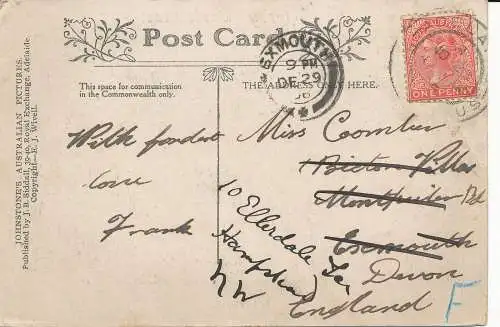 Post Card
EXMOUTH
9 PM
DE 29
06
ONE PENNY
This space for communication
in the Commonwealth only.
THE ADDRESS ONLY HERE.
JOHNSTONE'S AUSTRALIAN PICTURES.
Published by J. B. Siddall, Royal Exchange, Adelaide.
Copyright—E. J. Wivell.
With fondest
love
Frank
Miss Coomber
Bicton Villas
Montpelier Rd
Exemouth
Devon
England
10 Ellerdale
Hampstead
NW
F